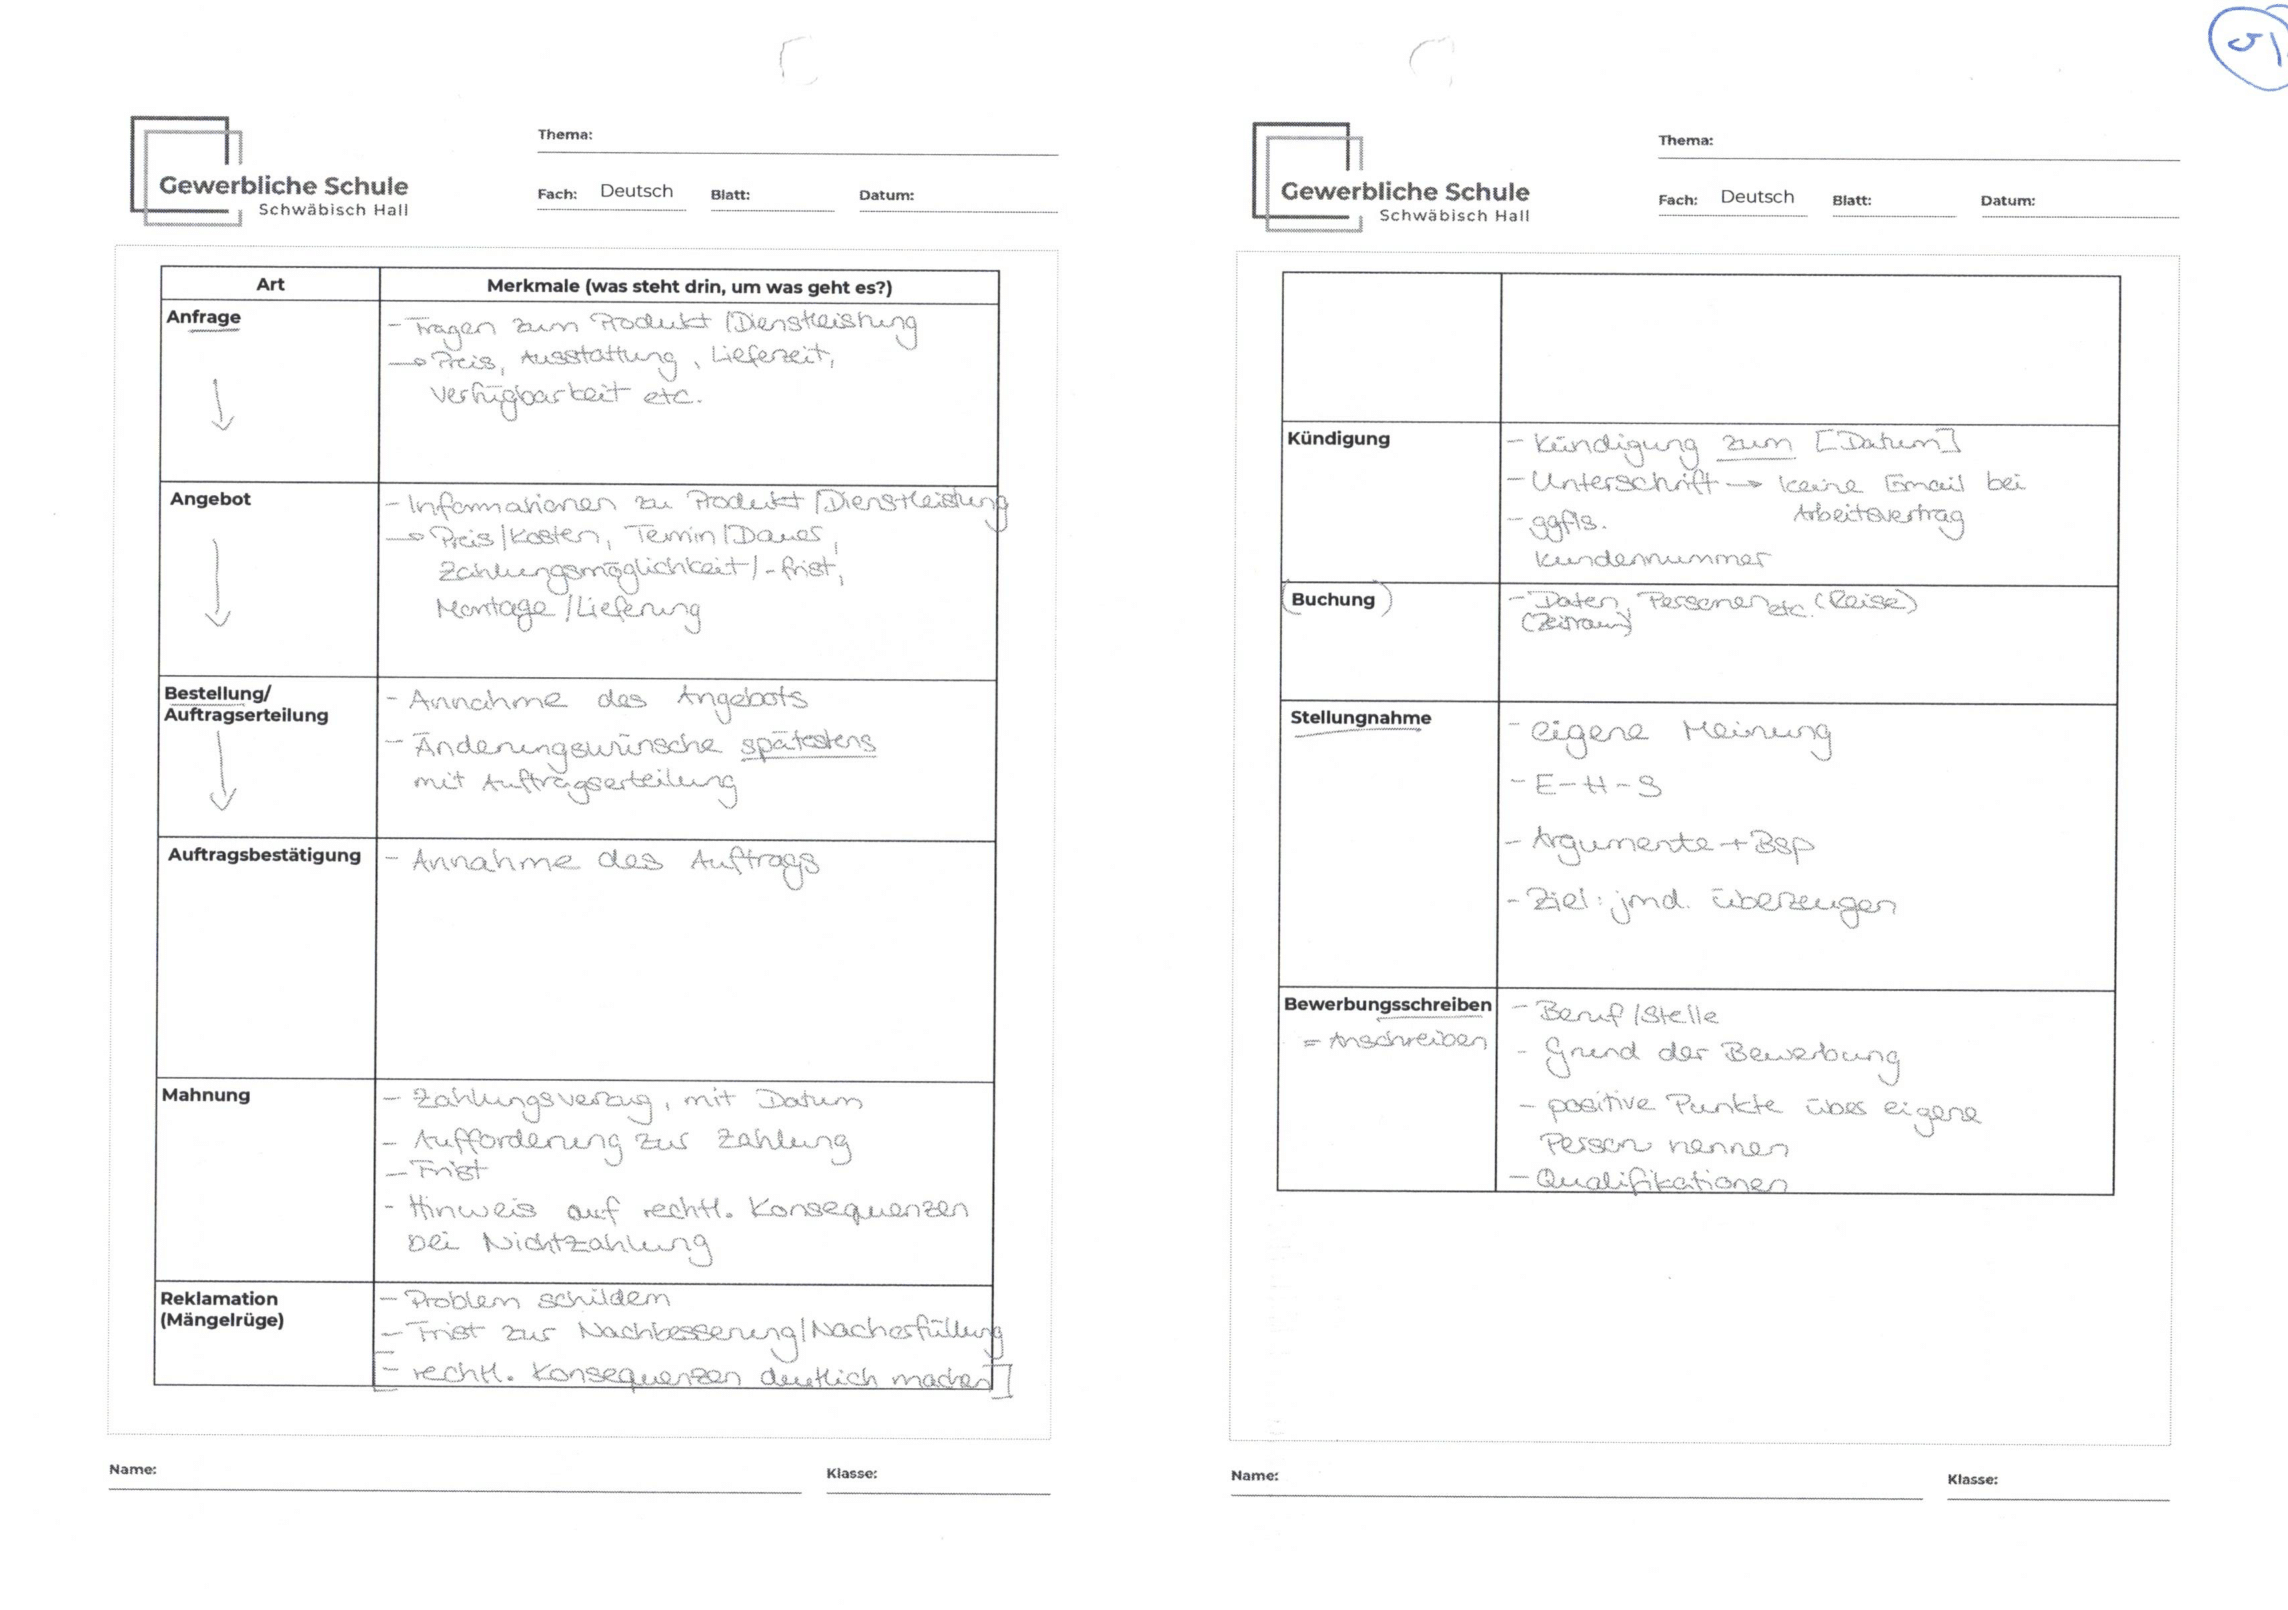 Gewerbliche Schule
Schwäbisch Hall
Thema:
Fach: Deutsch Blatt: Datum:
Art Merkmale (was steht drin, um was geht es?)
Anfrage
- Fragen zum Produkt / Dienstleistung
→ Preis, Ausstattung, Lieferzeit,
Verfügbarkeit etc.
Angebot
- Informationen zu Produkt / Dienstleistung
→ Preis / Kosten, Termin / Dauer,
Zahlungsmöglichkeit / -frist,
Montage / Lieferung
Bestellung/
Auftragserteilung
- Annahme des Angebots
- Änderungswünsche spätestens
mit Auftragserteilung
Auftragsbestätigung
- Annahme des Auftrags
Mahnung
- Zahlungsverzug, mit Datum
- Aufforderung zur Zahlung
- Frist
- Hinweis auf rechtl. Konsequenzen
bei Nichtzahlung
Reklamation
(Mängelrüge)
- Problem schildern
- Frist zur Nachbesserung/Nacherfüllung
[- rechtl. Konsequenzen deutlich machen]
Name: Klasse:
Gewerbliche Schule
Schwäbisch Hall
Thema:
Fach: Deutsch Blatt: Datum:
Kündigung
- Kündigung zum [Datum]
- Unterschrift → keine Email bei
Arbeitsvertrag
- ggfls.
Kundennummer
(Buchung)
- Daten, Personen etc. (Reise)
(Zeitraum)
Stellungnahme
- eigene Meinung
- E-H-S
- Argumente + Bsp
- Ziel: jmd. überzeugen
Bewerbungsschreiben
= Anschreiben
- Beruf / Stelle
- Grund der Bewerbung
- positive Punkte über eigene
Person nennen
- Qualifikationen
Name: Klasse: